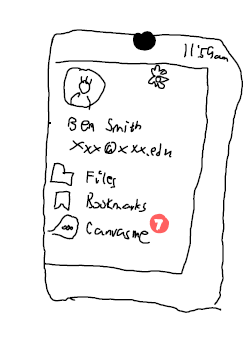 11:59am
Ben Smith
xxx@xxx.edu
Files
Bookmarks
Canvas me
7